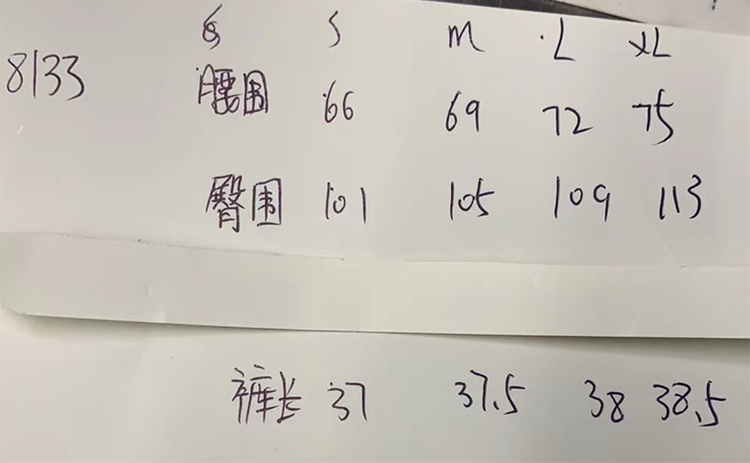 S M L XL
8133 腰围 66 69 72 75
臀围 101 105 109 113
裤长 37 37.5 38 38.5